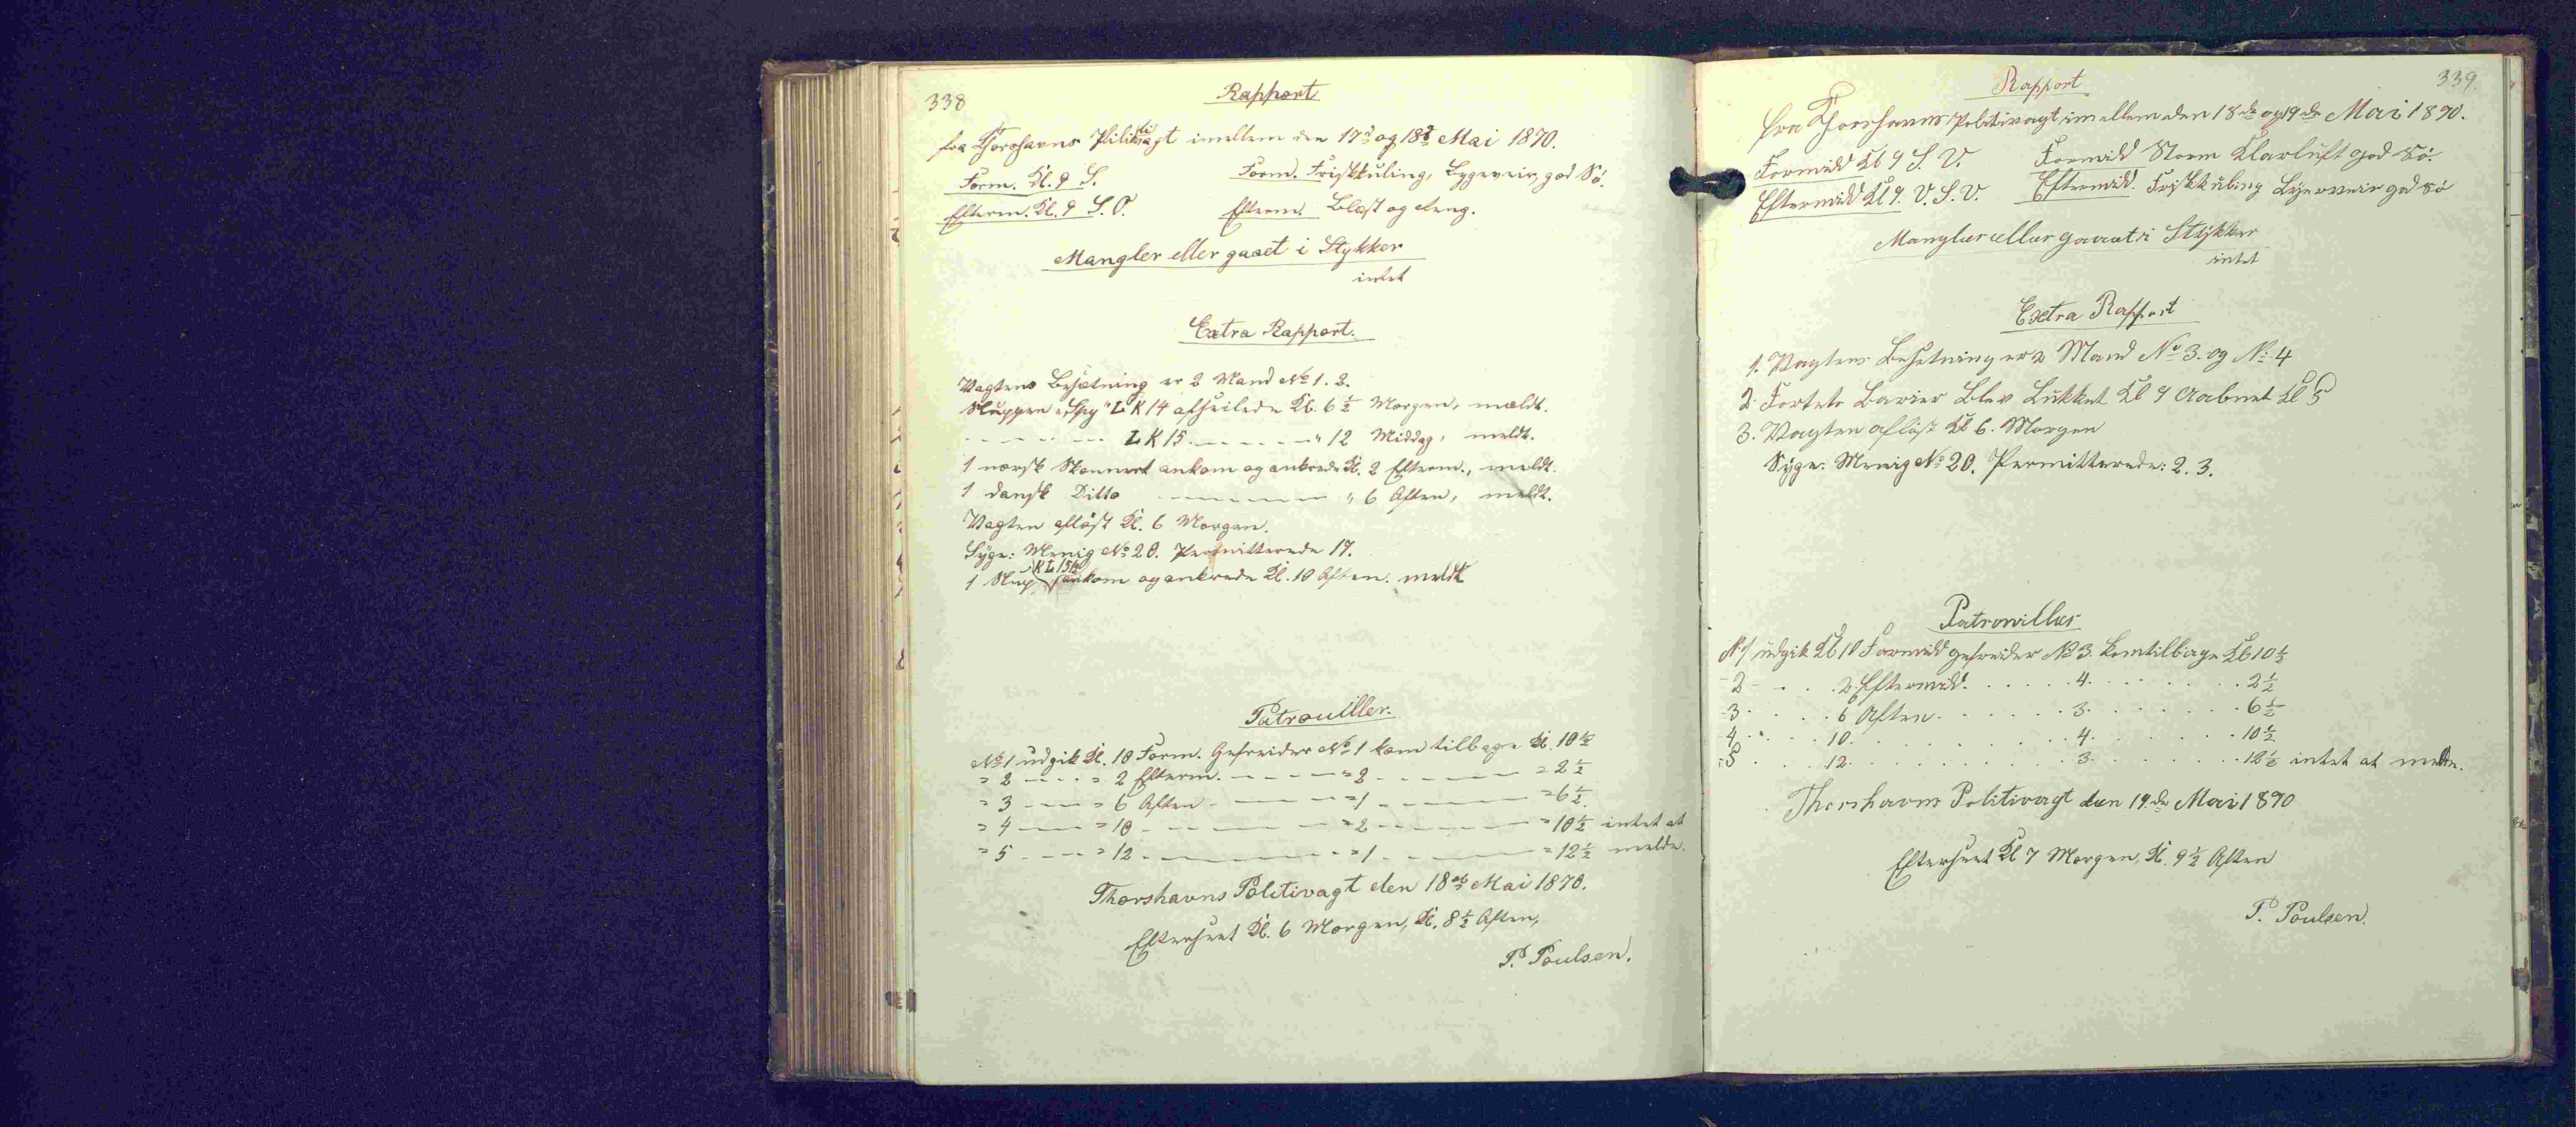 338
Rapport
fra Thorshavns Politivagt imellem den 17de og 18de Mai 1890.
Form. Kl. 9 S. Form. Friskkuling, Bygeveir, god Sö.
Efterm. Kl. 9 S.O. Efterm. Blæst og Reng.
Mangler eller gaaet i Stykker
intet
Extra Rapport.
Vagtens Besætning er 2 Mand No 1. 2.
Sluppen "Spy" LK 14 afseilede Kl. 6 1/2 Morgen, meldt.
- - - - - LK 15. - - - - " 12 Middag, meldt.
1 norsk Skonnert ankom og ankrede Kl. 2 Efterm., meldt.
1 dansk Ditto - - - - - - " 6 Aften, meldt.
Vagten aflöst Kl. 6 Morgen.
Syge: Menig No 20. Permitterede 17.
1 Slup KL 154 ankom og ankrede Kl. 10 Aften. meldt
Patrouiller.
No 1 udgik Kl. 10 Form. Gefreider No 1 kom tilbage Kl. 10 1/2
" 2 - - - " 2 Efterm. - - - - " 2 - - - - - " 2 1/2
" 3 - - - " 6 Aften - - - - " 1 - - - - - " 6 1/2
" 4 - - - " 10 - - - - - - " 2 - - - - - " 10 1/2 intet at
" 5 - - - " 12 - - - - - - " 1 - - - - - " 12 1/2 melde.
Thorshavns Politivagt den 18de Mai 1890.
Efterseet Kl. 6 Morgen, Kl. 8 1/2 Aften,
P. Poulsen.
339.
Rapport
fra Thorshavns Politivagt imellem den 18de og 19de Mai 1890.
Formidd Kl 9 S. V. Formidd Storm Klarluft god Sö.
Eftermidd Kl 9. V. S. V. Eftermidd. Friskkuling Byerveir god Sö
Mangler eller gaaet i Stykker
intet
Extra Rapport
1. Vagtens Besetning er 2 Mand No 3. og No 4
2. Fortets Barier Blev Lukket Kl 9 Aabnet Kl 5
3. Vagten aflöst Kl 6. Morgen
Syge: Menig No 20. Permitterede: 2. 3.
Patrouiller
No 1 udgik Kl 10 Formidd gefreider No 3. kom tilbage Kl 10 1/2
- 2 - . . . 2 Eftermidd. . . . . . 4. . . . . . . 2 1/2
- 3 . . . . 6 Aften. . . . . . 3. . . . . . . 6 1/2
4 . . . . 10. . . . . . . . 4. . . . . . . 10 1/2
- 5 . . . . 12. . . . . . . . 3. . . . . . . 12 1/2 intet at melde.
Thorshavns Politivagt den 19de Mai 1890
Efterseet Kl 7 Morgen, Kl. 9 1/2 Aften
P. Poulsen.